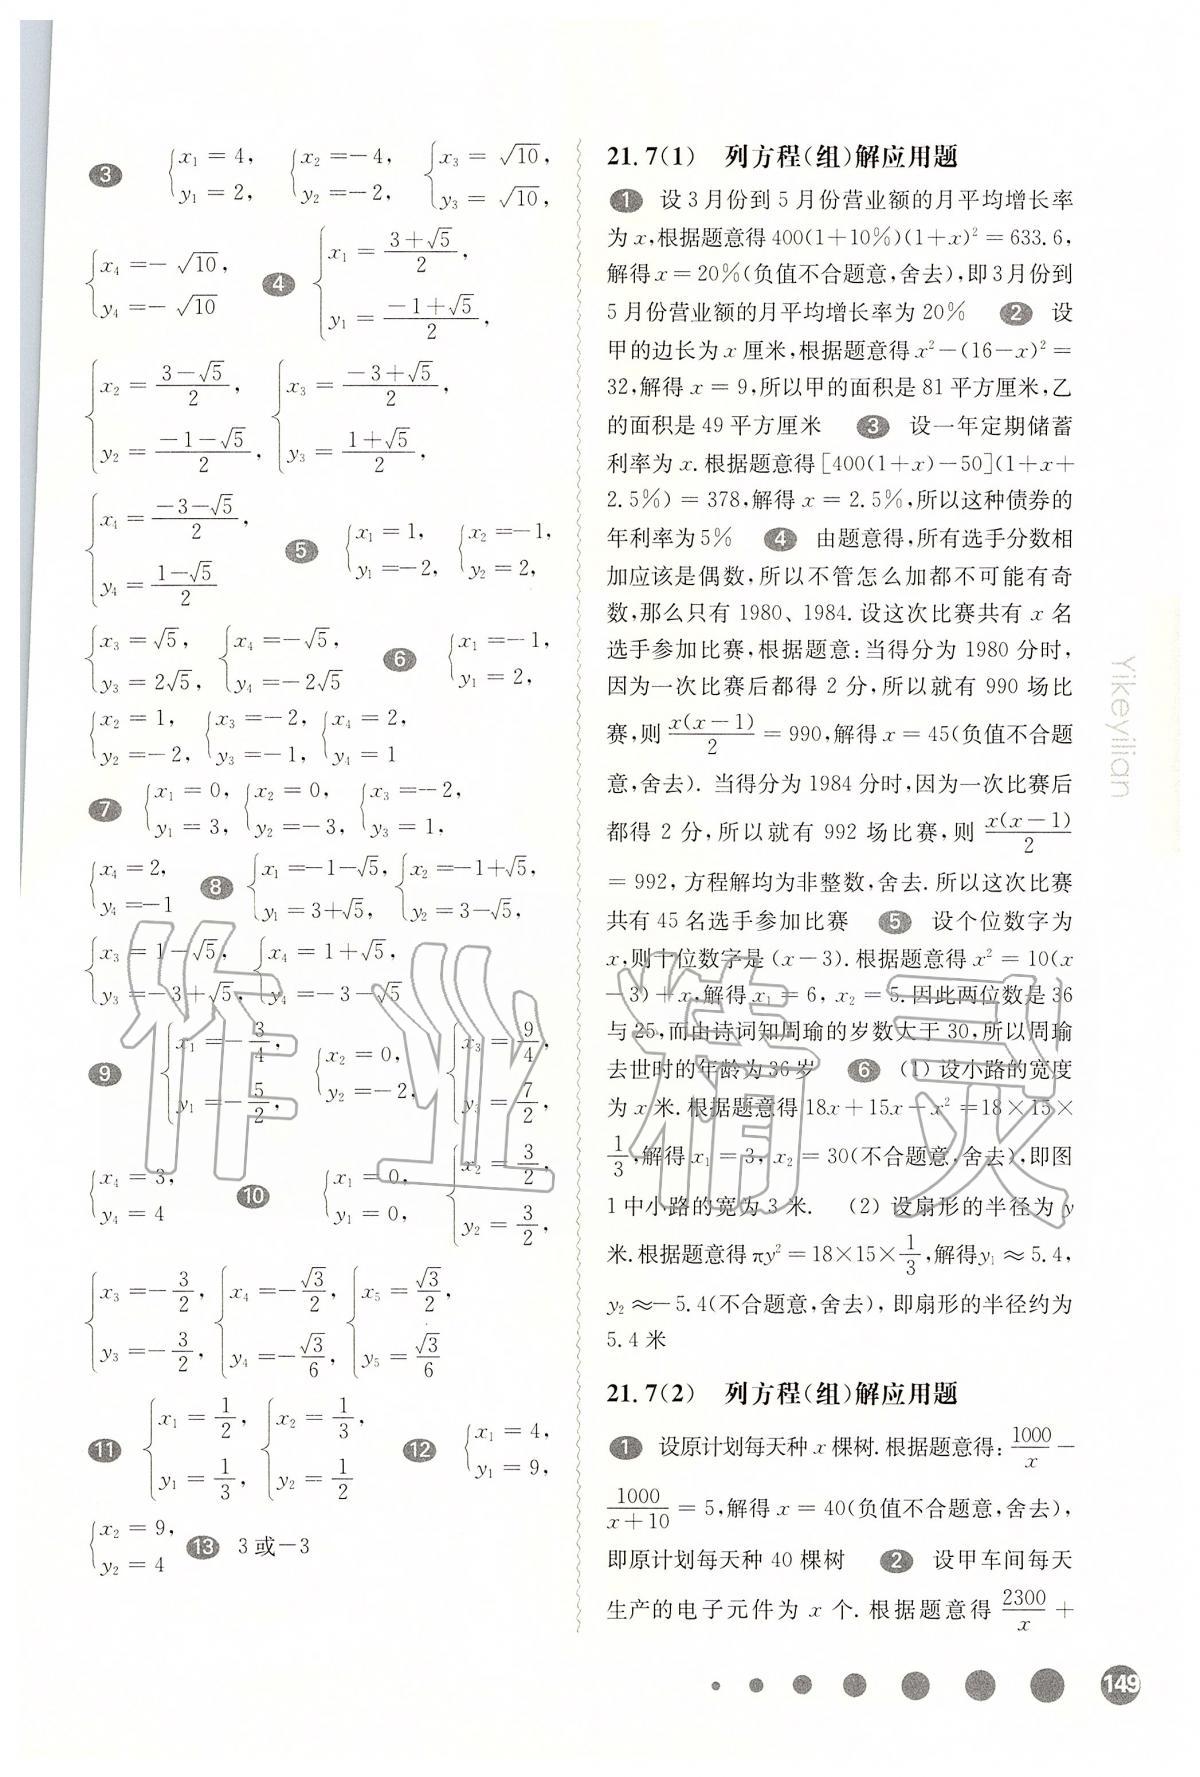 3 {x₁ = 4, y₁ = 2, {x₂ =−4, y₂ =−2, {x₃ = √10, y₃ = √10,
{x₄ =− √10, y₄ =− √10 4 {x₁ = (3+√5)/2, y₁ = (−1+√5)/2,
{x₂ = (3−√5)/2, y₂ = (−1−√5)/2, {x₃ = (−3+√5)/2, y₃ = (1+√5)/2,
{x₄ = (−3−√5)/2, y₄ = (1−√5)/2 5 {x₁ = 1, y₁ =−2, {x₂ =−1, y₂ = 2,
{x₃ = √5, y₃ = 2√5, {x₄ =−√5, y₄ =−2√5 6 {x₁ =−1, y₁ = 2,
{x₂ = 1, y₂ =−2, {x₃ =−2, y₃ =−1, {x₄ = 2, y₄ = 1
7 {x₁ = 0, y₁ = 3, {x₂ = 0, y₂ =−3, {x₃ =−2, y₃ = 1,
{x₄ = 2, y₄ =−1 8 {x₁ =−1−√5, y₁ = 3+√5, {x₂ =−1+√5, y₂ = 3−√5,
{x₃ = 1−√5, y₃ =−3+√5, {x₄ = 1+√5, y₄ =−3−√5
9 {x₁ =−3/4, y₁ =−5/2, {x₂ = 0, y₂ =−2, {x₃ = 9/4, y₃ = 7/2,
{x₄ = 3, y₄ = 4 10 {x₁ = 0, y₁ = 0, {x₂ = 3/2, y₂ = 3/2,
{x₃ =−3/2, y₃ =−3/2, {x₄ =−√3/2, y₄ =−√3/6, {x₅ = √3/2, y₅ = √3/6
11 {x₁ = 1/2, y₁ = 1/3, {x₂ = 1/3, y₂ = 1/2 12 {x₁ = 4, y₁ = 9,
{x₂ = 9, y₂ = 4 13 3或−3
21.7(1) 列方程(组)解应用题
1 设3月份到5月份营业额的月平均增长率
为x,根据题意得400(1+10%)(1+x)²=633.6,
解得x=20%(负值不合题意,舍去),即3月份到
5月份营业额的月平均增长率为20% 2 设
甲的边长为x厘米,根据题意得x²−(16−x)²=
32,解得x=9,所以甲的面积是81平方厘米,乙
的面积是49平方厘米 3 设一年定期储蓄
利率为x.根据题意得[400(1+x)−50](1+x+
2.5%)=378,解得x=2.5%,所以这种债券的
年利率为5% 4 由题意得,所有选手分数相
加应该是偶数,所以不管怎么加都不可能有奇
数,那么只有1980、1984.设这次比赛共有x名
选手参加比赛,根据题意:当得分为1980分时,
因为一次比赛后都得2分,所以就有990场比
赛,则x(x−1)/2=990,解得x=45(负值不合题
意,舍去).当得分为1984分时,因为一次比赛后
都得2分,所以就有992场比赛,则x(x−1)/2
=992,方程解均为非整数,舍去.所以这次比赛
共有45名选手参加比赛 5 设个位数字为
x,则十位数字是(x−3).根据题意得x²=10(x
−3)+x,解得x₁=6,x₂=5.因此两位数是36
与25,而由诗词知周瑜的岁数大于30,所以周瑜
去世时的年龄为36岁 6 (1)设小路的宽度
为x米.根据题意得18x+15x−x²=18×15×
1/3,解得x₁=3,x₂=30(不合题意,舍去),即图
1中小路的宽为3米. (2)设扇形的半径为y
米.根据题意得πy²=18×15×1/3,解得y₁≈5.4,
y₂≈−5.4(不合题意,舍去),即扇形的半径约为
5.4米
21.7(2) 列方程(组)解应用题
1 设原计划每天种x棵树.根据题意得:1000/x−
1000/(x+10)=5,解得x=40(负值不合题意,舍去),
即原计划每天种40棵树 2 设甲车间每天
生产的电子元件为x个.根据题意得2300/x+
Yikeyilian
149
作业精灵